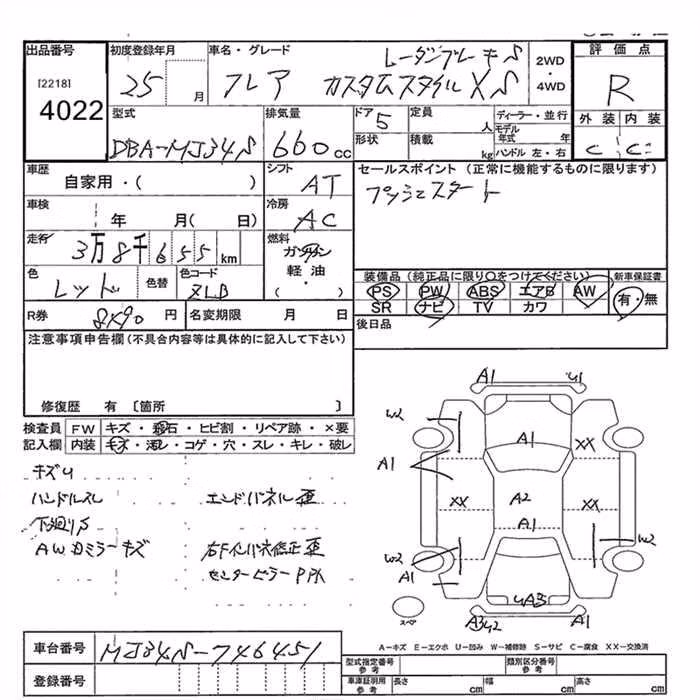 出品番号
[2218]
4022
初度登録年月
25 月
車名・グレード
レーダーブレーキS
フレア カスタムスタイル XS
2WD
・
4WD
評価点
R
外装 内装
C C
型式
DBA-MJ34S
排気量
660cc
ドア 5
形状
定員 人
積載 kg
ディーラー・並行
モデル年式 年
ハンドル 左・右
車歴
自家用・( )
シフト
AT
セールスポイント (正常に機能するものに限ります)
プッシュスタート
車検
年 月( 日)
冷房
AC
走行
3万8千655km
燃料
ガソリン
軽油
・
( )
色
レッド
色替
色コード
ZLB
装備品(純正品に限り○をつけてください)
PS PW ABS エアB AW
SR ナビ TV カワ
新車保証書
有・無
R券
8490 円
名変期限 月 日
後日品
注意事項申告欄(不具合内容等は具体的に記入して下さい)
修復歴 有 〔箇所 〕
検査員記入欄
FW キズ・飛石・ヒビ割・リペア跡・×要
内装 キズ・汚レ・コゲ・穴・スレ・キレ・破レ
キズU
ハンドルスレ
下廻りS
AWカミラーキズ
エンドパネル歪
右Fインパネ修正歪
センターピラー
A1 U1
W2
A1
A1
XX
XX
A2
XX
A1
W2
A1
W2
UA3
A3U2
A1
スペア
A-キズ E-エクボ U-凹み W-補修跡 S-サビ C-腐食 XX-交換済
車台番号
MJ34S-746451
登録番号
型式指定番号 参考
類別区分番号 参考
車庫証明用 参考
長さ cm 幅 cm 高さ cm